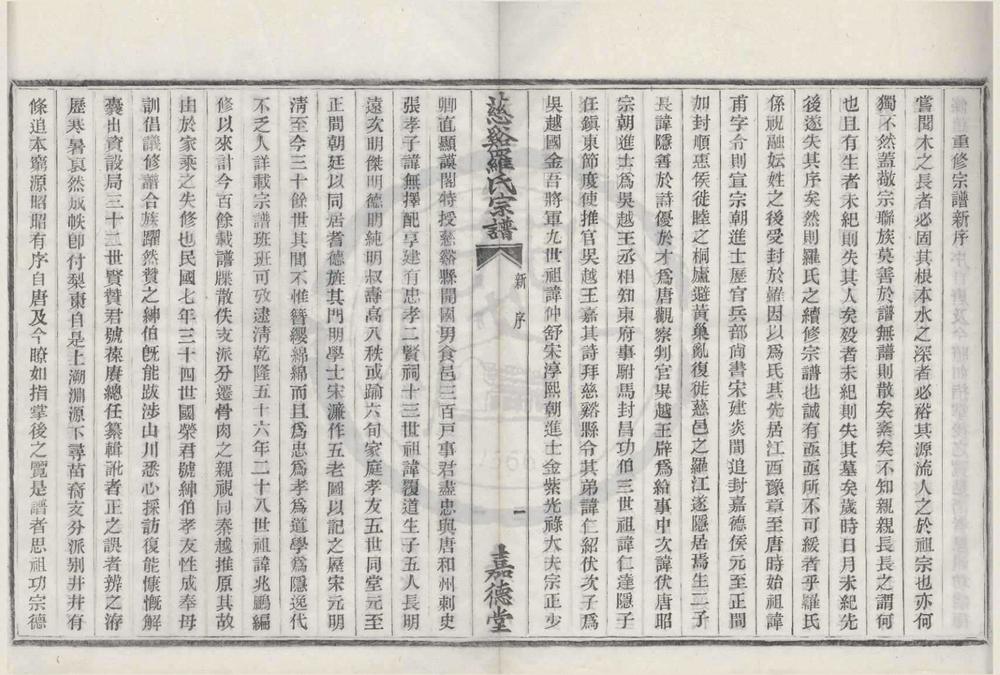 重修宗譜新序
嘗聞木之長者必固其根本水之深者必裕其源流人之於祖宗也亦何
獨不然蓋敬宗聯族莫善於譜無譜則散矣棄矣不知親親長長之謂何
也且有生者未紀則失其人矣殁者未紀則失其墓矣歲時日月未紀先
後遂失其序矣然則羅氏之續修宗譜也誠有亟亟所不可緩者乎羅氏
係祝融妘姓之後受封於羅因以爲氏其先居江西豫章至唐時始祖諱
甫字令則宣宗朝進士歷官兵部尚書宋建炎間追封嘉德侯元至正間
加封順惠侯徙睦之桐廬避黃巢亂復徙慈邑之羅江遂隱居焉生二子
長諱隱善於詩優於才爲唐觀察判官吳越王辟爲給事中次諱伏唐昭
宗朝進士爲吳越王丞相知東府事駙馬封昌功伯三世祖諱仁達隱子
任鎮東節度使推官吳越王嘉其詩拜慈谿縣令其弟諱仁紹伏次子爲
吳越國金吾將軍九世祖諱仲舒宋淳熙朝進士金紫光祿大夫宗正少
慈谿羅氏宗譜
新序
一
嘉德堂
卿直顯謨閣特授慈谿縣開國男食邑三百戸事君盡忠與唐和州刺史
張孝子諱無擇配享建有忠孝二賢祠十三世祖諱覆道生子五人長明
遠次明傑明德明純明叔壽高八秩或踰六旬家庭孝友五世同堂元至
正間朝廷以同居耆德旌其門明學士宋濂作五老圖以記之歷宋元明
淸至今三十餘世其間不惟簪纓綿綿而且爲忠爲孝爲道學爲隱逸代
不乏人詳載宗譜班班可攷逮淸乾隆五十六年二十八世祖諱兆鵬編
修以來計今百餘載譜牒散佚支派分遷骨肉之親視同秦越推原其故
由於家乘之失修也民國七年三十四世國榮君號紳伯孝友性成奉母
訓倡議修譜合族躍然贊之紳伯旣能跋涉山川悉心採訪復能慷慨解
囊出資設局三十三世賢贊君號葆賡總任纂輯訛者正之誤者辨之洊
歷寒暑裒然成帙卽付梨棗自是上溯淵源下尋苗裔支分派別井井有
條追本窮源昭昭有序自唐及今瞭如指掌後之覽是譜者思祖功宗德